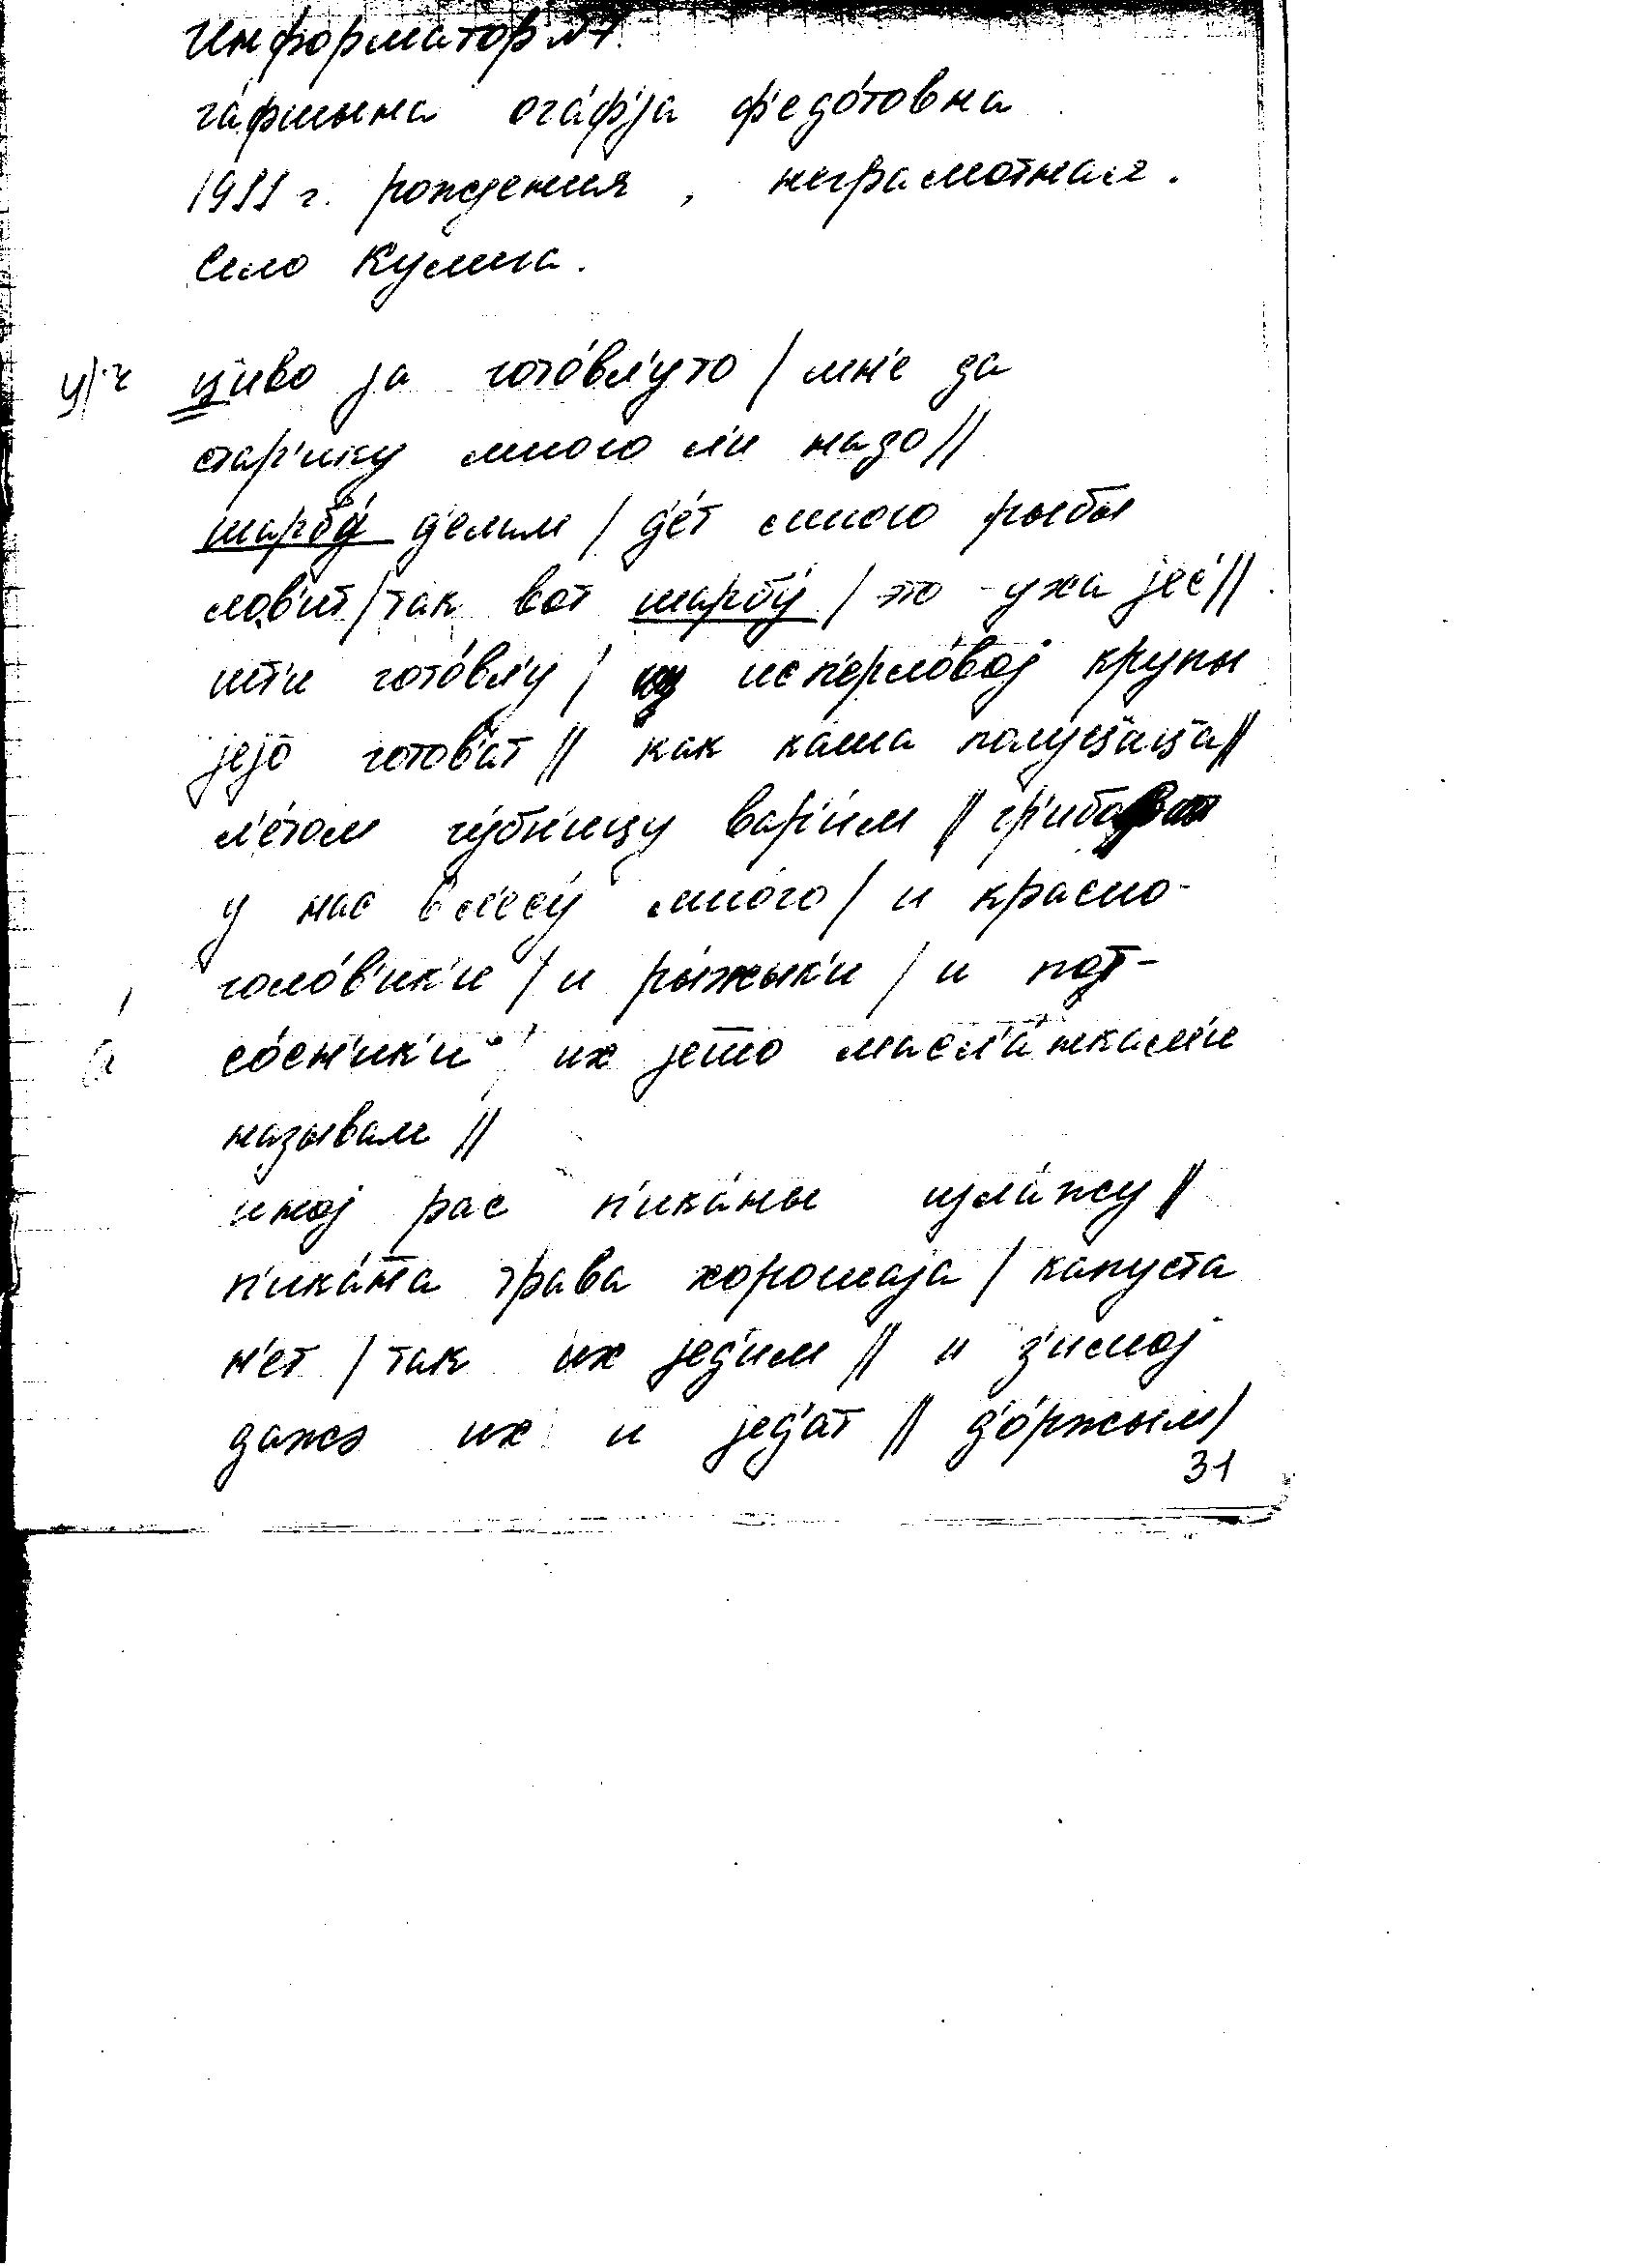 Информатор №7.
га́ршына ога́ф'jа ф'едо́товна
1911 г. рождения, неграмотная.
Село Кулига.
ц'иво jа гото́вл'уто / мн'е да
стар'ику много л'и надо //
шарбу́ д'елам / д'ет много рыбы
лов'ит / так вот шарбу́ / это уха jес' //
шт'и гото́вл'у / исп'ерло́воj крупы
jеjо́ готов'ат // как каша полуц'аjица //
л'е́том гу́бн'ицу вар'и́м // гр'ибо
у нас в л'есу́ мно́го / и красно-
голо́в'ик'и / и ры́жык'и / и пот-
со́сн'ик'и / их jешо масл'а́ткам'и
называм //
иноj рас п'ика́ны излажу //
п'ика́на трава хорошаjа / капуста
н'ет / так их jед'им // и з'имоj
дажэ их и jед'ат // д'о́ржым /
31